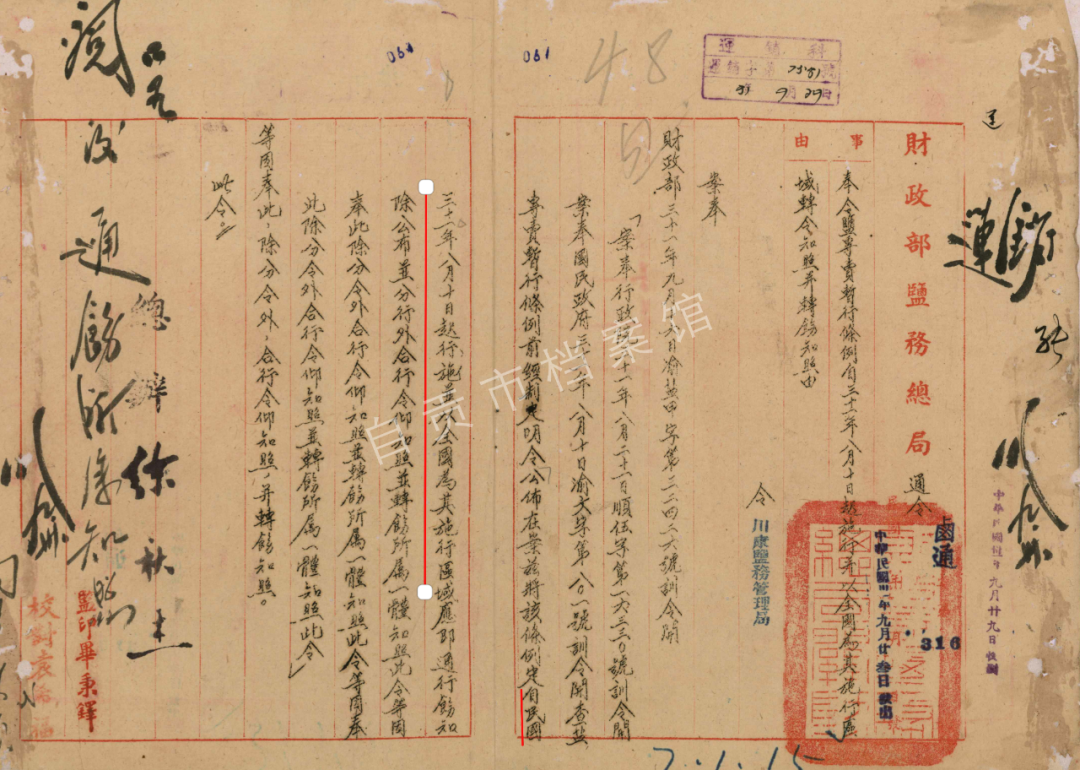 財政部鹽務總局 通令
鹵通
316
中華民國卅一年九月廿叁日發出
中華民國卅一年九月廿九日收到
事由
奉令鹽專賣暫行條例自三十一年八月十日起施行並以全國為其施行區
域轉令知照并轉飭知照由
令 川康鹽務管理局
案奉
財政部三十一年九月十六日渝鹽甲字第三二四二六號訓令開
「案奉行政院三十一年八月二十一日順伍字第一六三三〇號訓令開
案奉國民政府三十一年八月十日渝文字第八〇一號訓令開查鹽
專賣暫行條例前經制定明令公佈在案茲將該條例定自民國
三十一年八月十日起行施並以全國為其施行區域應即通行飭知
除公布並分行外合行令仰知照並轉飭所屬一體知照此令等因
奉此除分令外合行令仰知照並轉飭所屬一體知照此令等因奉
此除分令外合行令仰知照並轉飭所屬一體知照此令」
等因奉此,除分令外,合行令仰知照,并轉飭知照。
此令。
總辦 徐秋杰
監印畢秉鐸
校對袁
運銷科
9月29日
48
061
061
閱
通飭所屬知照
運銷
自贡市档案馆